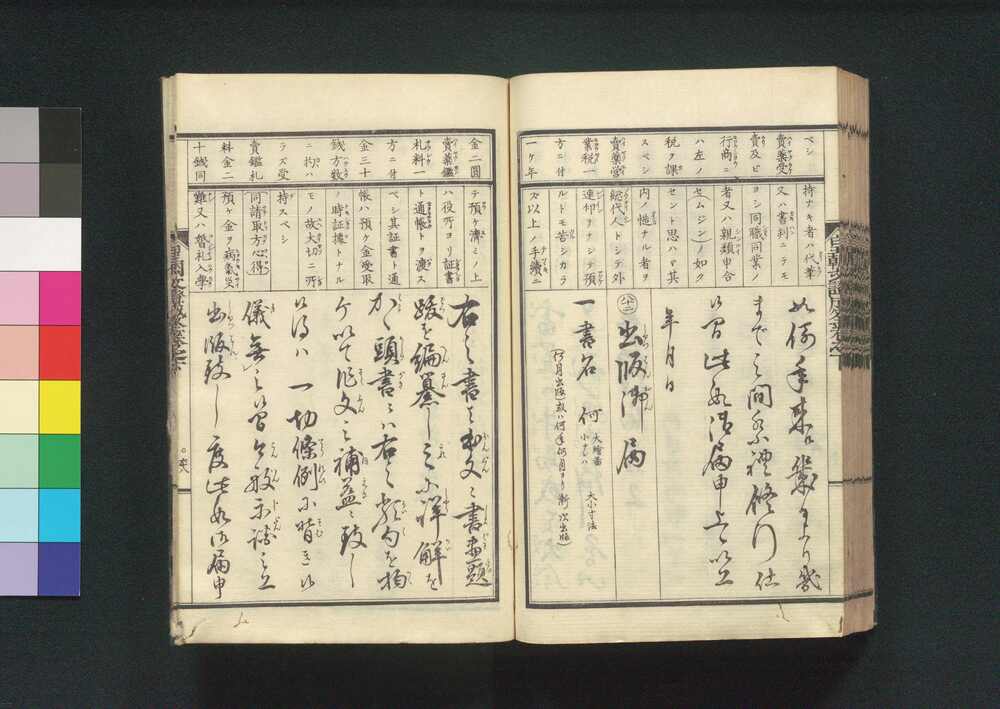 ベシ
賣薬受
賣及ビ
行商ニ
ハ左ノ
税ヲ課
スベシ
賣薬営
業税一
方ニ付
一ケ年
持ナキ者ハ代筆
又ハ書判ニテモ
ヨシ同職同業ノ
者又ハ親類申合
セムジン)ノ如ク
セント思ハヾ其
内ノ慥ナル者ヲ
総代人トシテ外
連印ヲナシテ預
ルトモ苦シカラ
ズ以上ノ手續ニ
如例年来ル幾日より幾
まで之間祭禮修行仕
候間此段御届申上候以上
年月日
出版御届
一書名 何 大繪圖 小 大小寸法
何月出版)或ハ何年何月より漸次出版)
金二圓
賣薬鑑
札料一
方ニ付
金三十
銭方数
ニ拘ハ
ラズ受
賣鑑札
料金二
十銭同
テ預ケ濟ミノ上
ハ役所ヨリ証書
ト通帳トヲ渡ス
ベシ其証書ト通
帳ハ預ケ金受取
ノ時証據トナル
モノ故大切ニ所
持スベシ
同請取方心得
預ケ金ヲ病氣災
難又ハ婚礼入學
右之書は 文之書畫題
跋を編纂し之に詳解を
加へ頭書ニハ右之類句を摘
ケ以て作文之補益ニ致し
候得ハ一切條例に背き候
儀無之候間今般示談之上
出版致し度此段御届申